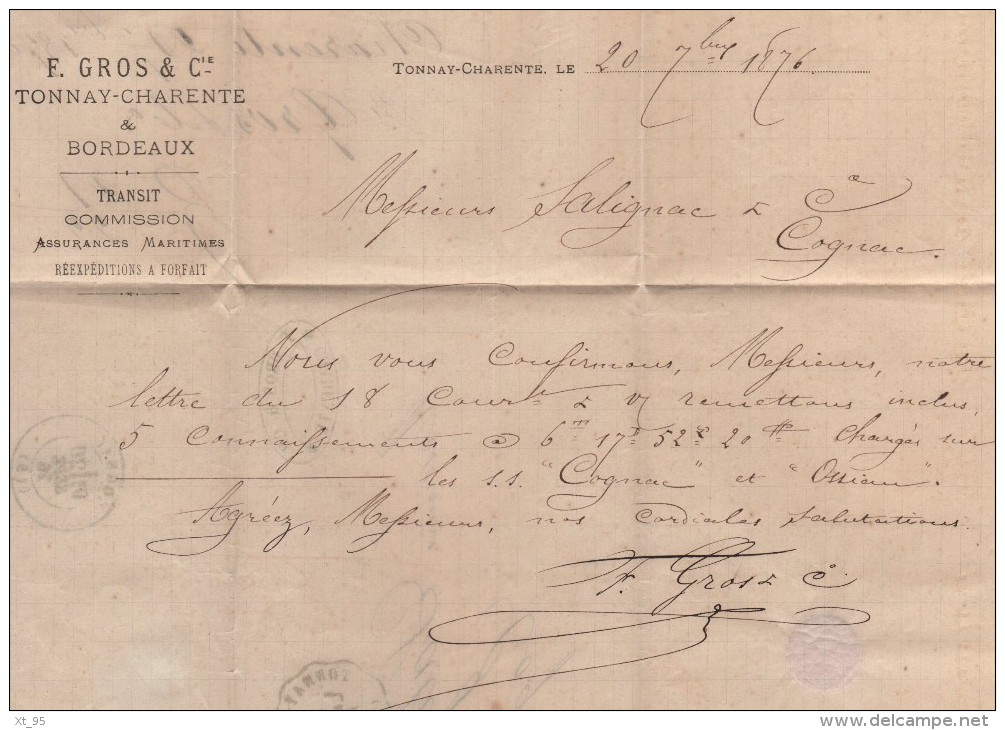 F. GROS & CIE
TONNAY-CHARENTE
&
BORDEAUX
TRANSIT
COMMISSION
ASSURANCES MARITIMES
RÉEXPÉDITIONS A FORFAIT
TONNAY-CHARENTE, LE 20 7bre 1876.
Messieurs Salignac & Ce
Cognac.
Nous vous confirmons, Messieurs, notre
lettre du 18 Cour & v/ remettons inclus,
5 connaissements @ 6 17 52 20 chargés sur
les s.s. "Cognac" et "Ossian".
Agréez, Messieurs, nos cordiales salutations.
F. Gros & Ce
Xt_95
www.delcampe.net